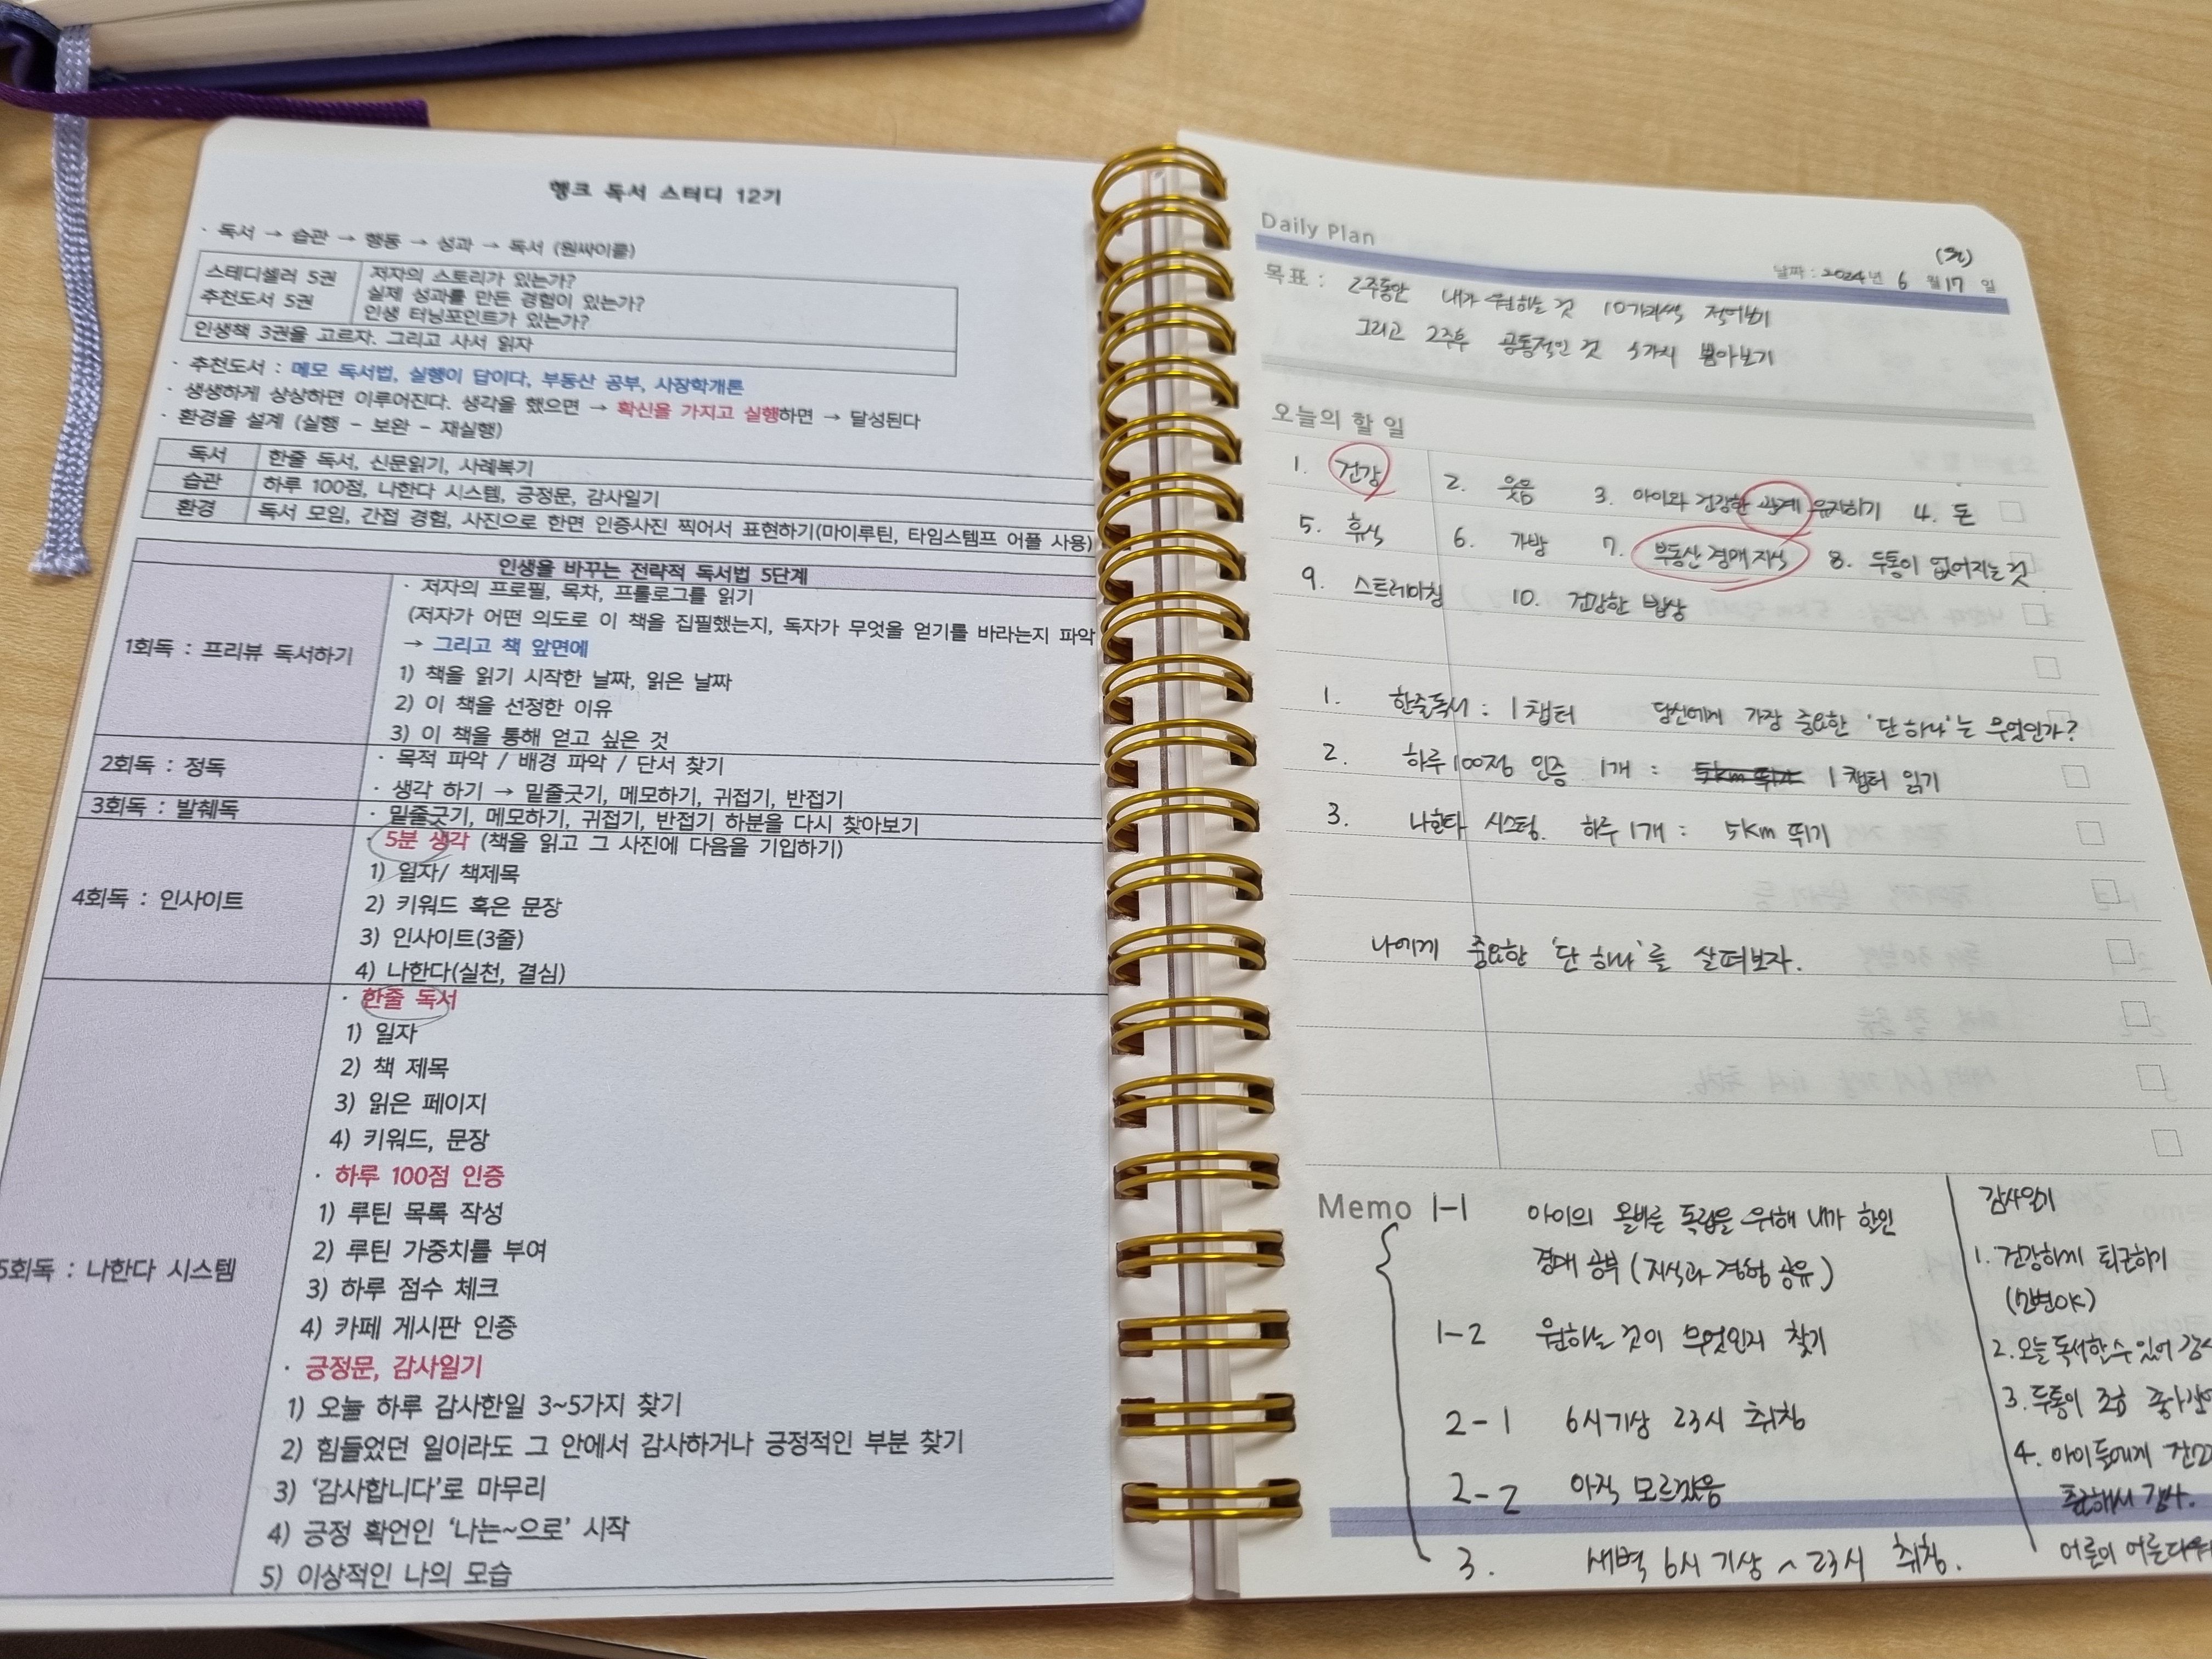 행크 독서 스터디 12기
· 독서 → 습관 → 행동 → 성과 → 독서 (원싸이클)
스테디셀러 5권
추천도서 5권
저자의 스토리가 있는가?
실제 성과를 만든 경험이 있는가?
인생 터닝포인트가 있는가?
인생책 3권을 고르자. 그리고 사서 읽자
· 추천도서 : 메모 독서법, 실행이 답이다, 부동산 공부, 사장학개론
· 생생하게 상상하면 이루어진다. 생각을 했으면 → 확신을 가지고 실행하면 → 달성된다
· 환경을 설계 (실행 - 보완 - 재실행)
독서 한줄 독서, 신문읽기, 사례복기
습관 하루 100점, 나한다 시스템, 긍정문, 감사일기
환경 독서 모임, 간접 경험, 사진으로 한면 인증사진 찍어서 표현하기(마이루틴, 타임스템프 어플 사용)
인생을 바꾸는 전략적 독서법 5단계
1회독 : 프리뷰 독서하기
· 저자의 프로필, 목차, 프롤로그를 읽기
(저자가 어떤 의도로 이 책을 집필했는지, 독자가 무엇을 얻기를 바라는지 파악
→ 그리고 책 앞면에
1) 책을 읽기 시작한 날짜, 읽은 날짜
2) 이 책을 선정한 이유
3) 이 책을 통해 얻고 싶은 것
2회독 : 정독
· 목적 파악 / 배경 파악 / 단서 찾기
· 생각 하기 → 밑줄긋기, 메모하기, 귀접기, 반접기
3회독 : 발췌독
· 밑줄긋기, 메모하기, 귀접기, 반접기 하분을 다시 찾아보기
4회독 : 인사이트
· 5분 생각 (책을 읽고 그 사진에 다음을 기입하기)
1) 일자/ 책제목
2) 키워드 혹은 문장
3) 인사이트(3줄)
4) 나한다(실천, 결심)
5회독 : 나한다 시스템
· 한줄 독서
1) 일자
2) 책 제목
3) 읽은 페이지
4) 키워드, 문장
· 하루 100점 인증
1) 루틴 목록 작성
2) 루틴 가중치를 부여
3) 하루 점수 체크
4) 카페 게시판 인증
· 긍정문, 감사일기
1) 오늘 하루 감사한일 3~5가지 찾기
2) 힘들었던 일이라도 그 안에서 감사하거나 긍정적인 부분 찾기
3) ‘감사합니다’로 마무리
4) 긍정 확언인 ‘나는~으로’ 시작
5) 이상적인 나의 모습
Daily Plan
(월)
날짜 : 2024년 6 월 17 일
목표 : 2주동안 내가 원하는 것 10가지씩 적어보기
그리고 2주후 공통적인 것 5가지 뽑아보기
오늘의 할 일
1. 건강 2. 웃음 3. 아이와 건강한 관계 유지하기 4. 돈
5. 휴식 6. 가방 7. 부동산 경매 지식 8. 두통이 없어지는 것
9. 스트레이칭 10. 건강한 밥상
1. 한줄독서 : 1챕터 당신에게 가장 중요한 '단 하나'는 무엇인가?
2. 하루 100점 인증 1개 : 5km 뛰기 1챕터 읽기
3. 나한다 시스템. 하루 1개 : 5km 뛰기
나에게 중요한 '단 하나'를 살펴보자.
Memo
1-1 아이의 올바른 독립을 위해 내가 할일
경매 공부 (지식과 경험 공유)
1-2 원하는 것이 무엇인지 찾기
2-1 6시기상 23시 취침
2-2 아직 모르겠음
3. 새벽 6시 기상 ~ 23시 취침.
감사일기
1. 건강하게 퇴근하기
2. 오늘 독서할수 있어
3. 두통이 조금
4. 아이들에게
출근해서 감사.
어른이